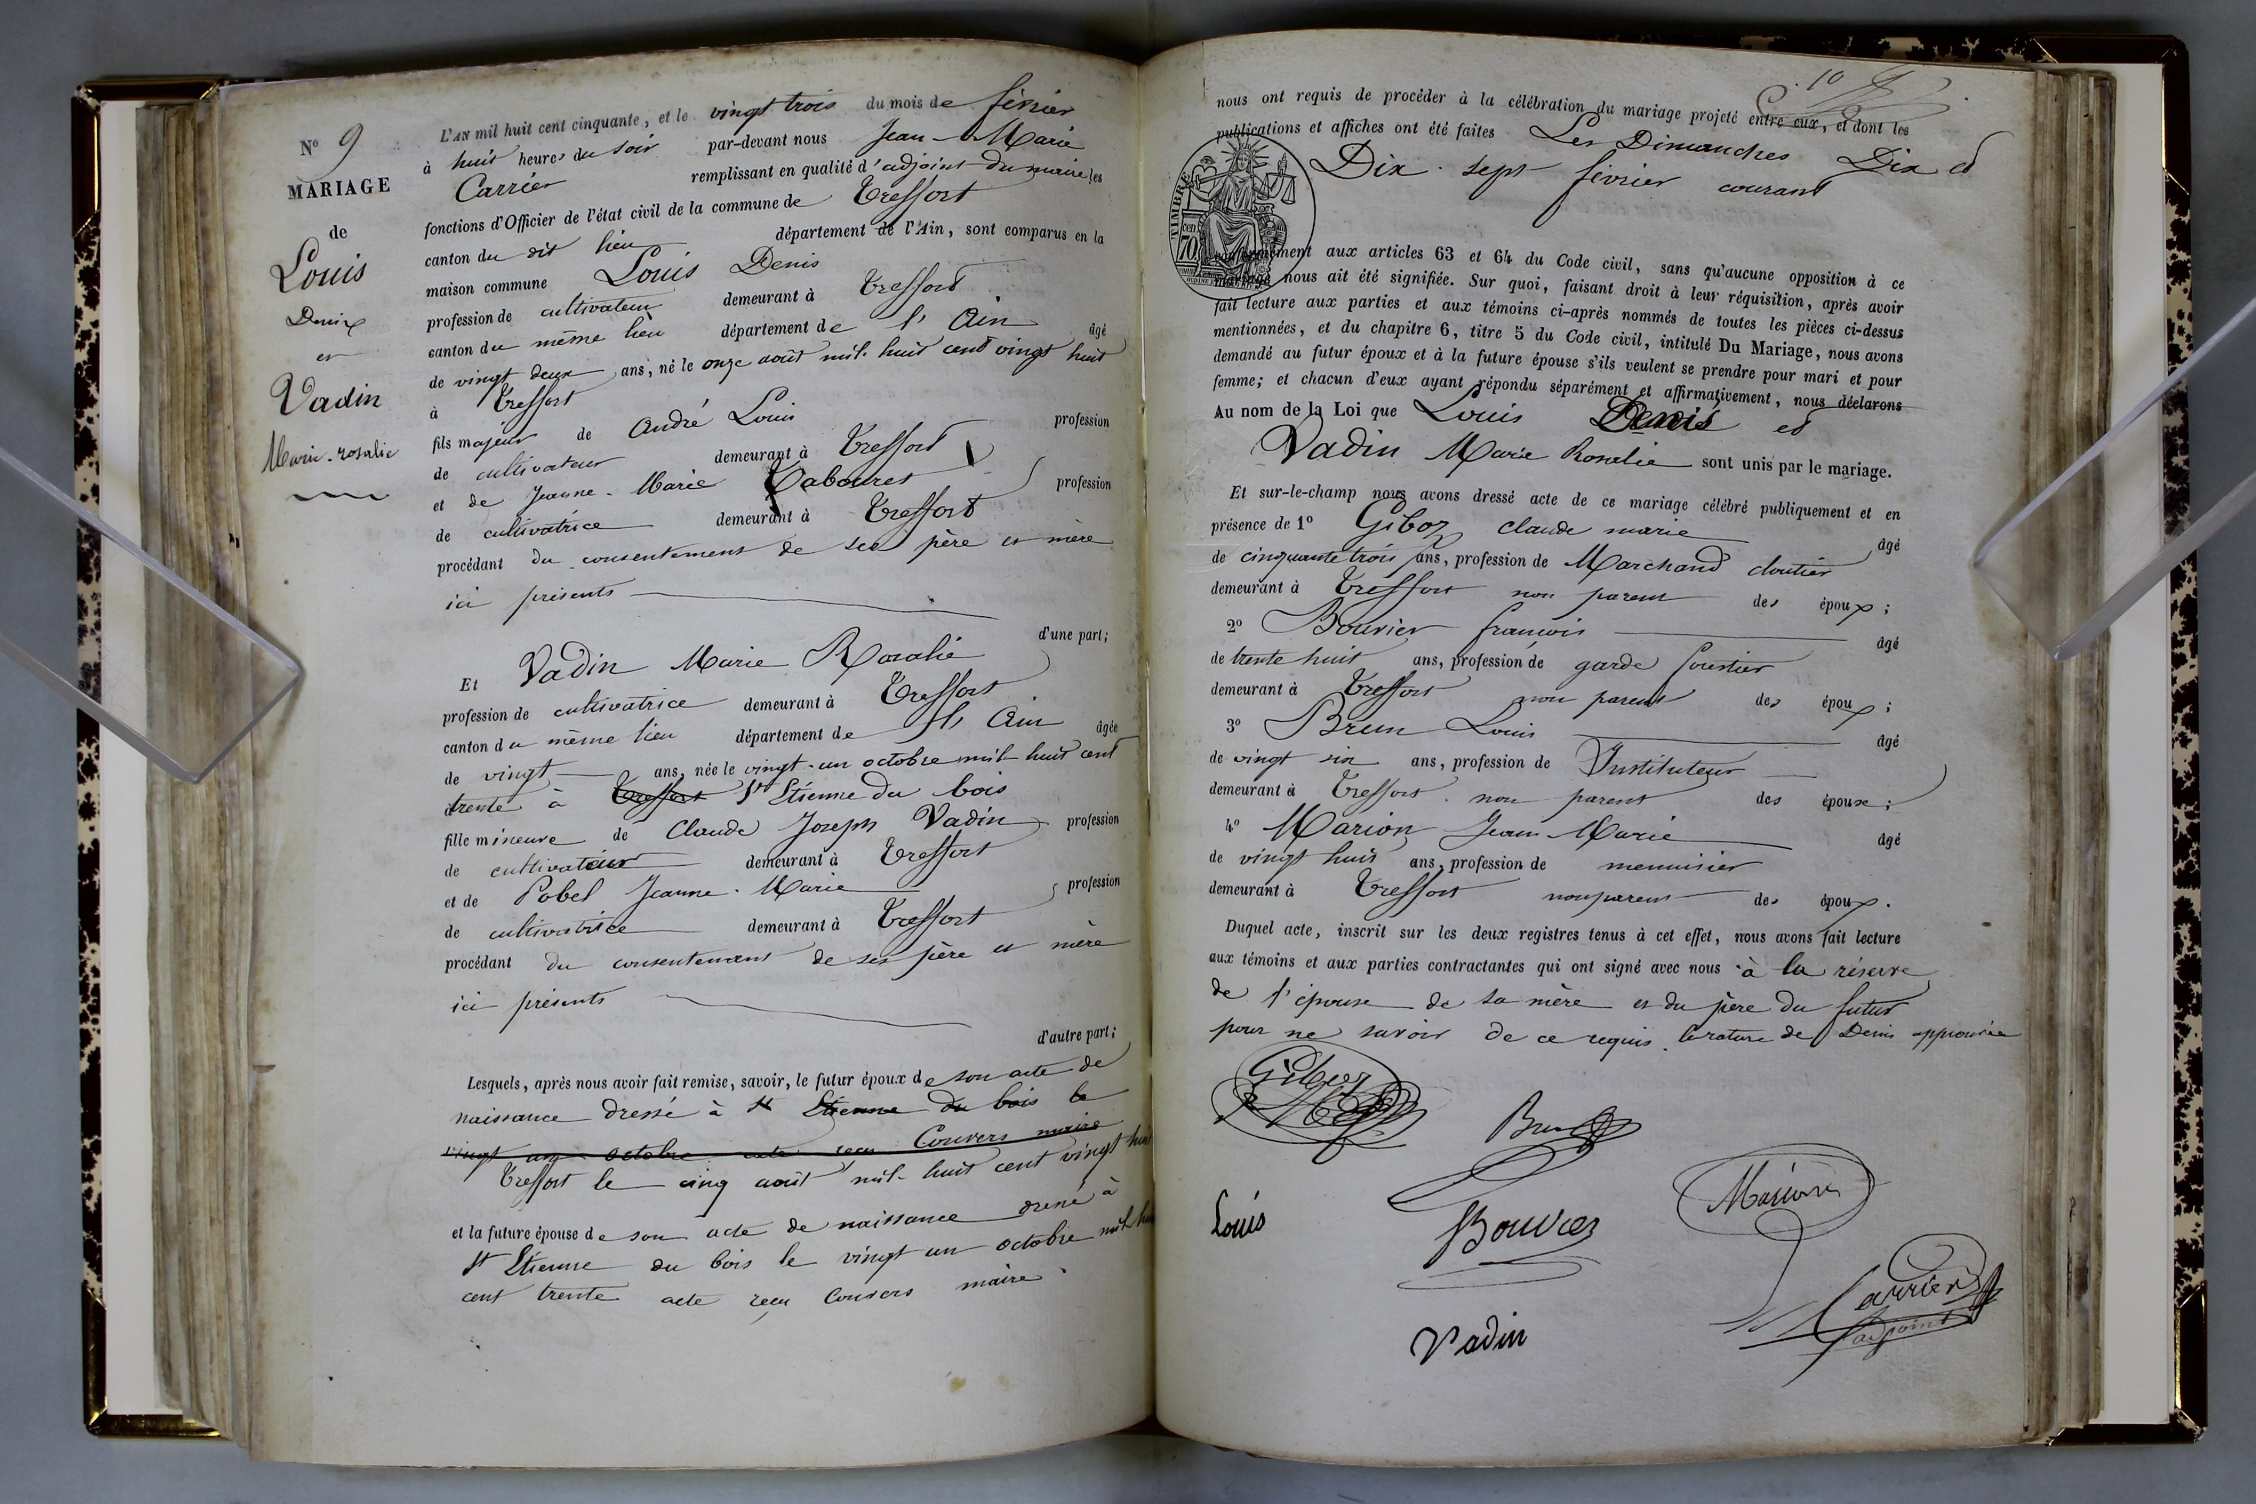 N° 9
MARIAGE
de
Louis
Denis
et
Vadin
Marie-rosalie
L'AN mil huit cent cinquante, et le vingt trois du mois de février
à huit heures du soir par-devant nous Jean-Marie
Carrier remplissant en qualité d'adjoint du maire les
fonctions d'Officier de l'état civil de la commune de Treffort
canton du dit lieu département de l'Ain, sont comparus en la
maison commune Louis Denis
profession de cultivateur demeurant à Treffort
canton du même lieu département de l'Ain âgé
de vingt deux ans, né le onze août mil huit cent vingt huit
à Treffort
fils majeur de André Louis profession
de cultivateur demeurant à Treffort
et de Jeanne-Marie Tabouret profession
de cultivatrice demeurant à Treffort
procédant du consentement de ses père et mère
ici présents
d'une part;
Et Vadin Marie Rosalie
profession de cultivatrice demeurant à Treffort
canton du même lieu département de l'Ain âgée
de vingt ans, née le vingt-un octobre mil huit cent
trente à Treffort St Etienne du bois
fille mineure de Claude Joseph Vadin profession
de cultivateur demeurant à Treffort
et de Pobel Jeanne-Marie profession
de cultivatrice demeurant à Treffort
procédant du consentement de ses père et mère
ici présents
d'autre part;
Lesquels, après nous avoir fait remise, savoir, le futur époux de son acte de
naissance dressé à St Etienne du bois le
vingt un octobre acte reçu Convers maire
Treffort le cinq août mil huit cent vingt huit
et la future épouse de son acte de naissance dressé à
St Etienne du bois le vingt un octobre mil huit
cent trente acte reçu Convers maire
10
nous ont requis de procéder à la célébration du mariage projeté entre eux, et dont les
publications et affiches ont été faites Les Dimanches Dix et
Dix-sept février courant
TIMBRE
70
conformément aux articles 63 et 64 du Code civil, sans qu'aucune opposition à ce
mariage nous ait été signifiée. Sur quoi, faisant droit à leur réquisition, après avoir
fait lecture aux parties et aux témoins ci-après nommés de toutes les pièces ci-dessus
mentionnées, et du chapitre 6, titre 5 du Code civil, intitulé Du Mariage, nous avons
demandé au futur époux et à la future épouse s'ils veulent se prendre pour mari et pour
femme; et chacun d'eux ayant répondu séparément et affirmativement, nous déclarons
Au nom de la Loi que Louis Denis et
Vadin Marie Rosalie sont unis par le mariage.
Et sur-le-champ nous avons dressé acte de ce mariage célébré publiquement et en
présence de 1° Giboz claude marie âgé
de cinquante trois ans, profession de Marchand cloutier
demeurant à Treffort non parent des époux;
2° Bouvier francois âgé
de trente huit ans, profession de garde forestier
demeurant à Treffort non parent des époux;
3° Brun Louis âgé
de vingt six ans, profession de Instituteur
demeurant à Treffort non parent des époux;
4° Marion Jean-Marie âgé
de vingt huit ans, profession de menuisier
demeurant à Treffort non parent des époux.
Duquel acte, inscrit sur les deux registres tenus à cet effet, nous avons fait lecture
aux témoins et aux parties contractantes qui ont signé avec nous à la réserve
de l'épouse de sa mère et du père du futur
pour ne savoir de ce requis. la rature de Denis approuvée
Giboz
Brun
Marion
Louis
Bouvier
Carrier
adjoint
Vadin